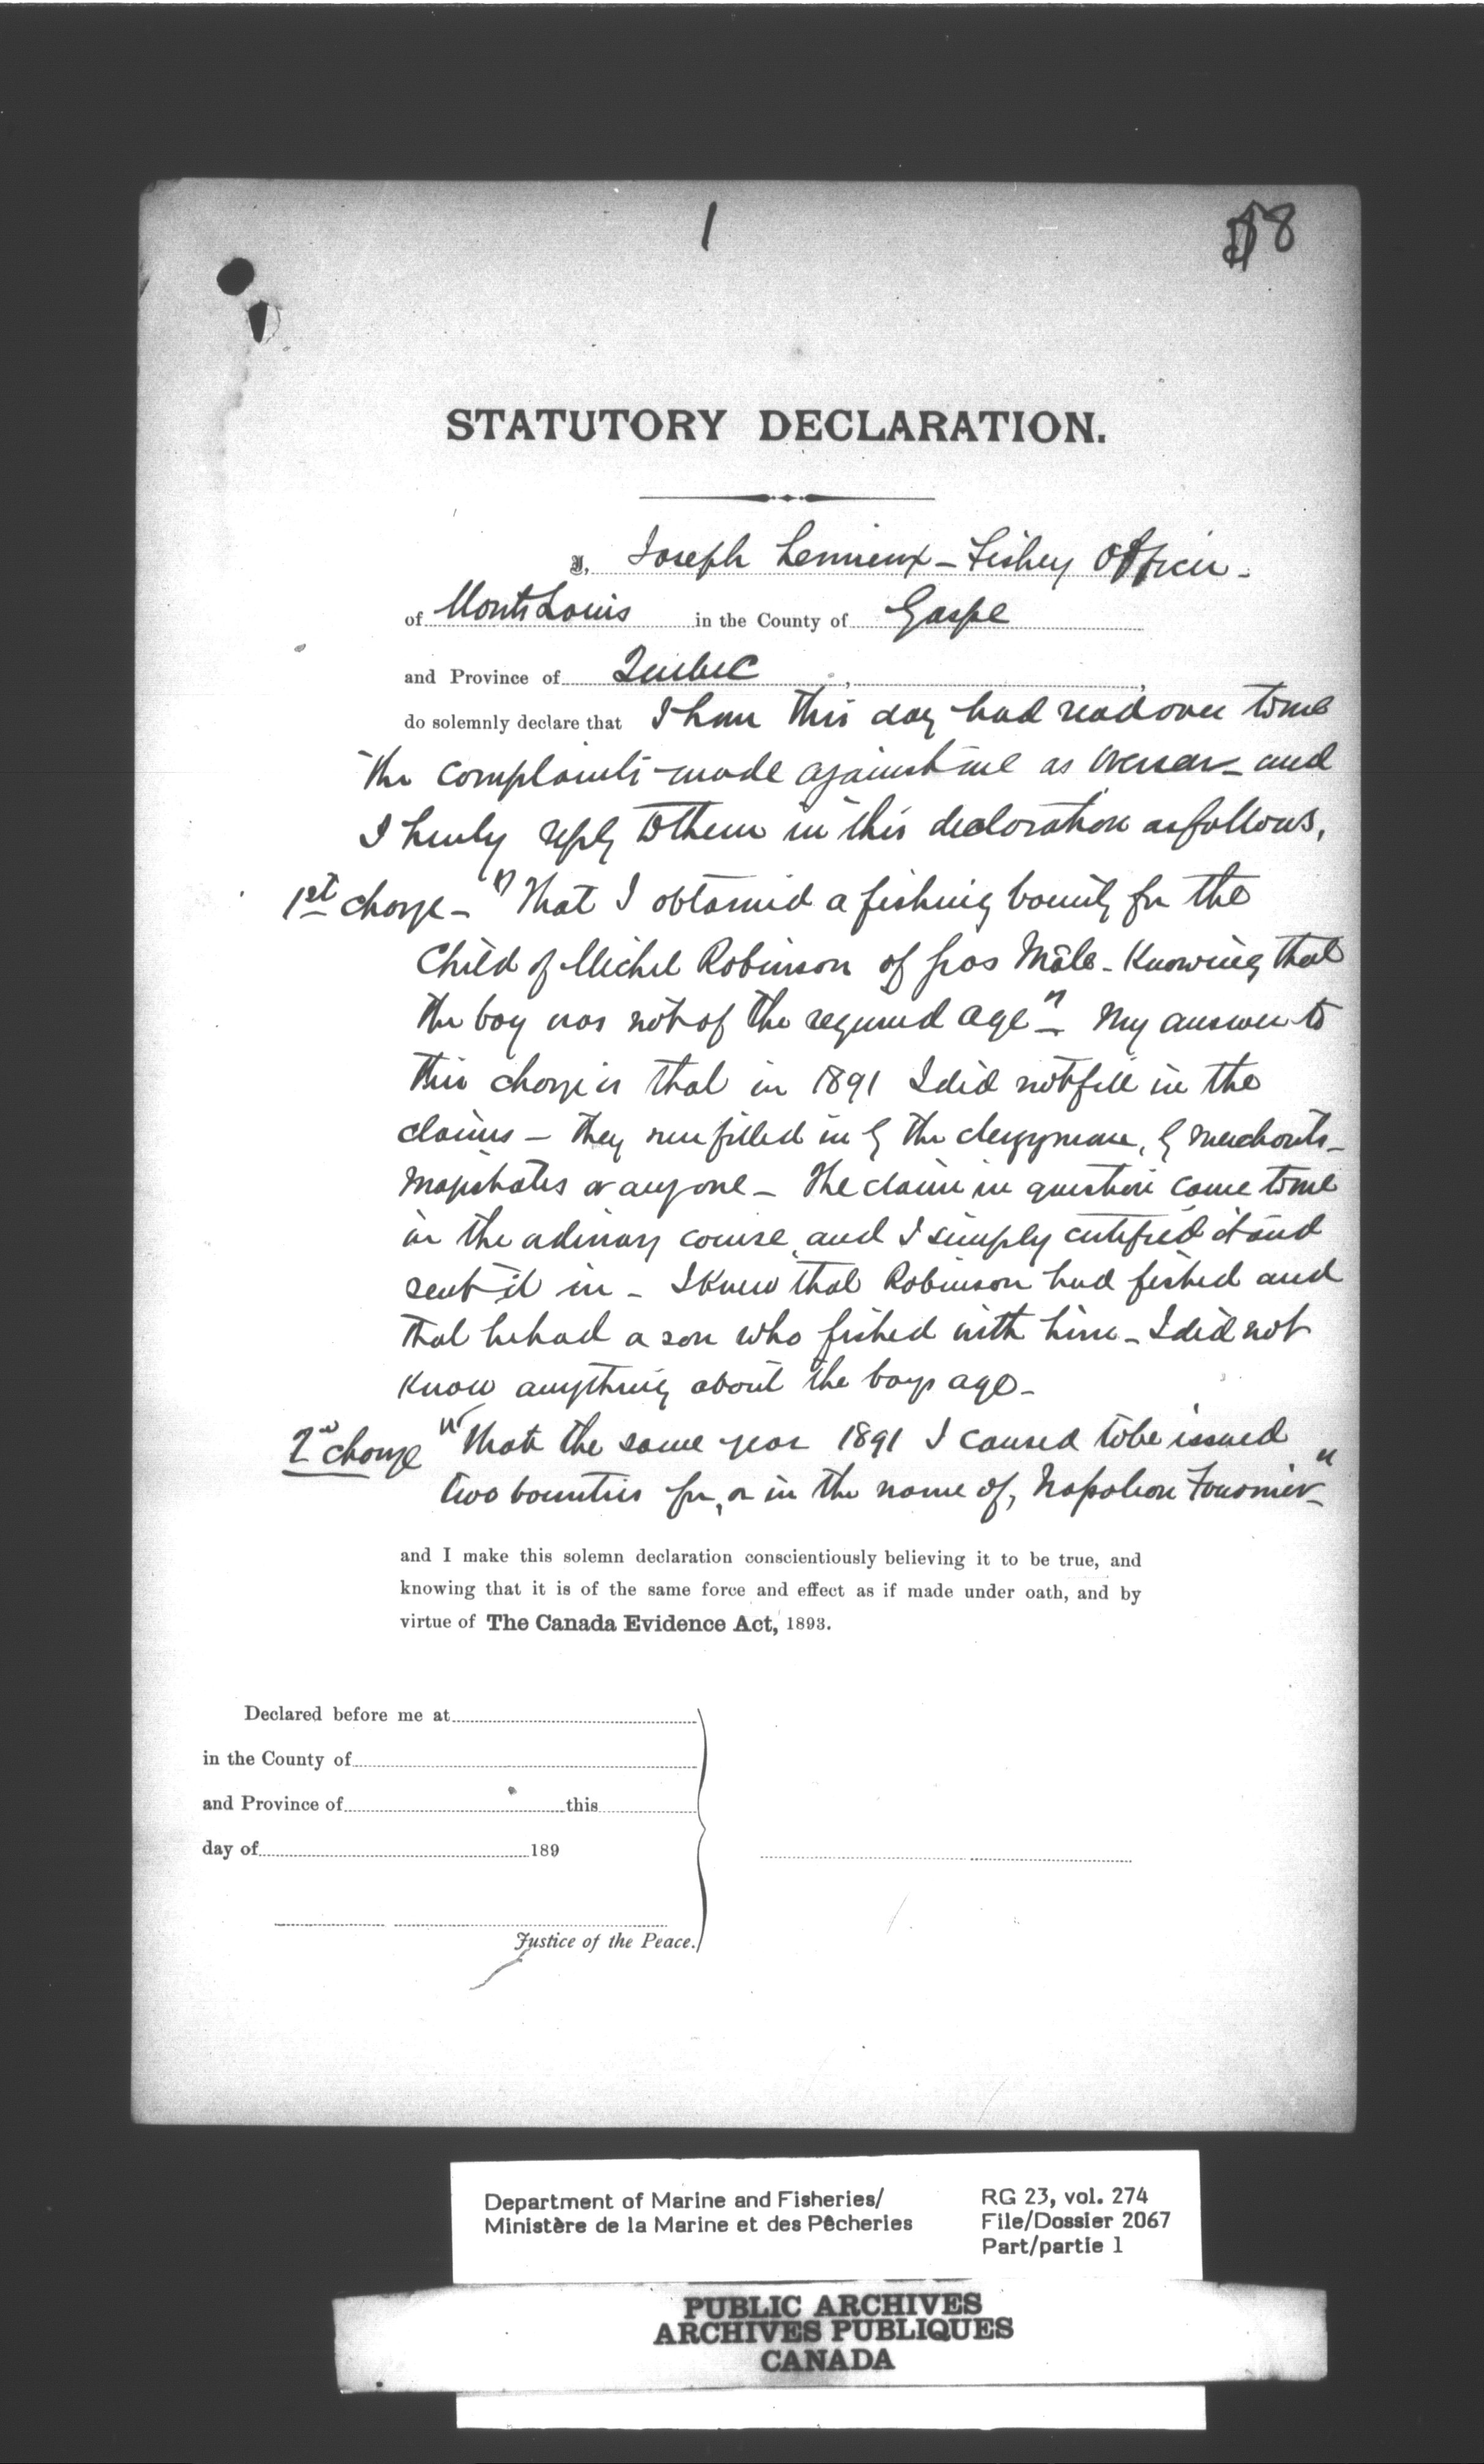 1
18
STATUTORY DECLARATION.
I, Joseph Lemieux – Fishery Officer –
of Mont Louis in the County of Gaspe
and Province of Quebec ,
do solemnly declare that I have this day had read over to me
the complaints made against me as Overseer – and
I hereby reply to them in this declaration as follows,
1st charge – "That I obtained a fishing bounty for the
Child of Michel Robinson of Gros Mâle – Knowing that
the boy was not of the required age" – My answer to
this charge is that in 1891 I did not fill in the
claims – they were filled in by the clergyman, by merchants –
magistrates or anyone – The claim in question came to me
in the ordinary course, and I simply certified it and
sent it in – I knew that Robinson had fished and
that he had a son who fished with him – I did not
know anything about the boys age –
2nd charge "That the same year 1891 I caused to be issued
two bounties for, or in the name of, Napoleon Fournier" –
and I make this solemn declaration conscientiously believing it to be true, and
knowing that it is of the same force and effect as if made under oath, and by
virtue of The Canada Evidence Act, 1893.
Declared before me at
in the County of
and Province of this
day of 189
Justice of the Peace.
Department of Marine and Fisheries/
Ministère de la Marine et des Pêcheries
RG 23, vol. 274
File/Dossier 2067
Part/partie 1
PUBLIC ARCHIVES
ARCHIVES PUBLIQUES
CANADA